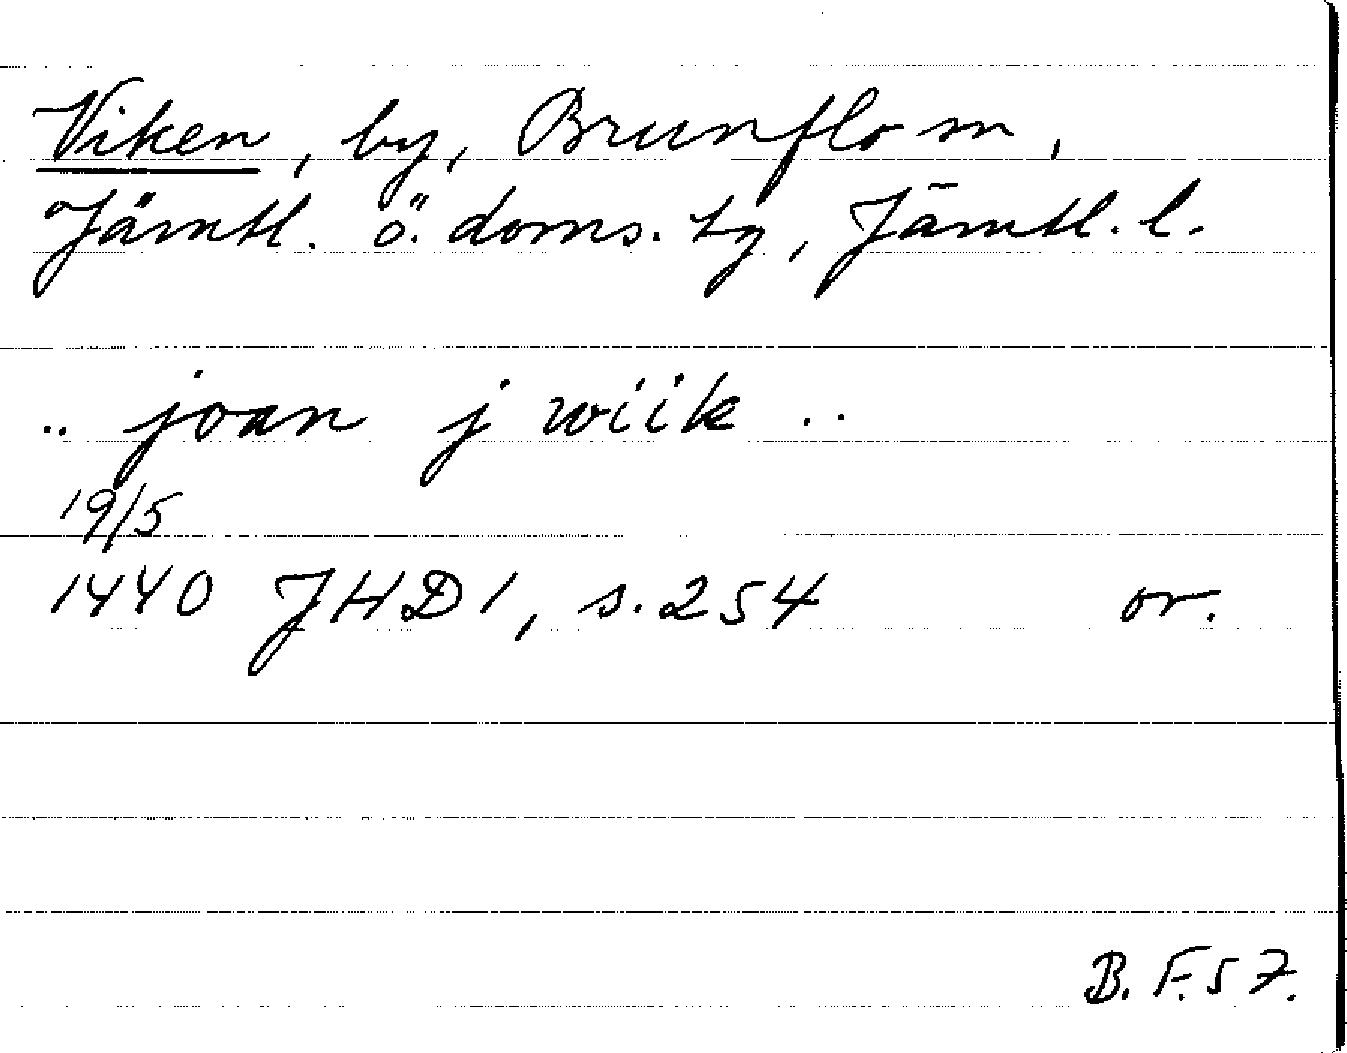 Viken, by, Brunflo sn,
Jämtl. ö. doms. tg, Jämtl. l.
.. joan j wiik ..
19/5
1440 JHD 1, s. 254 or.
B. F. 57.